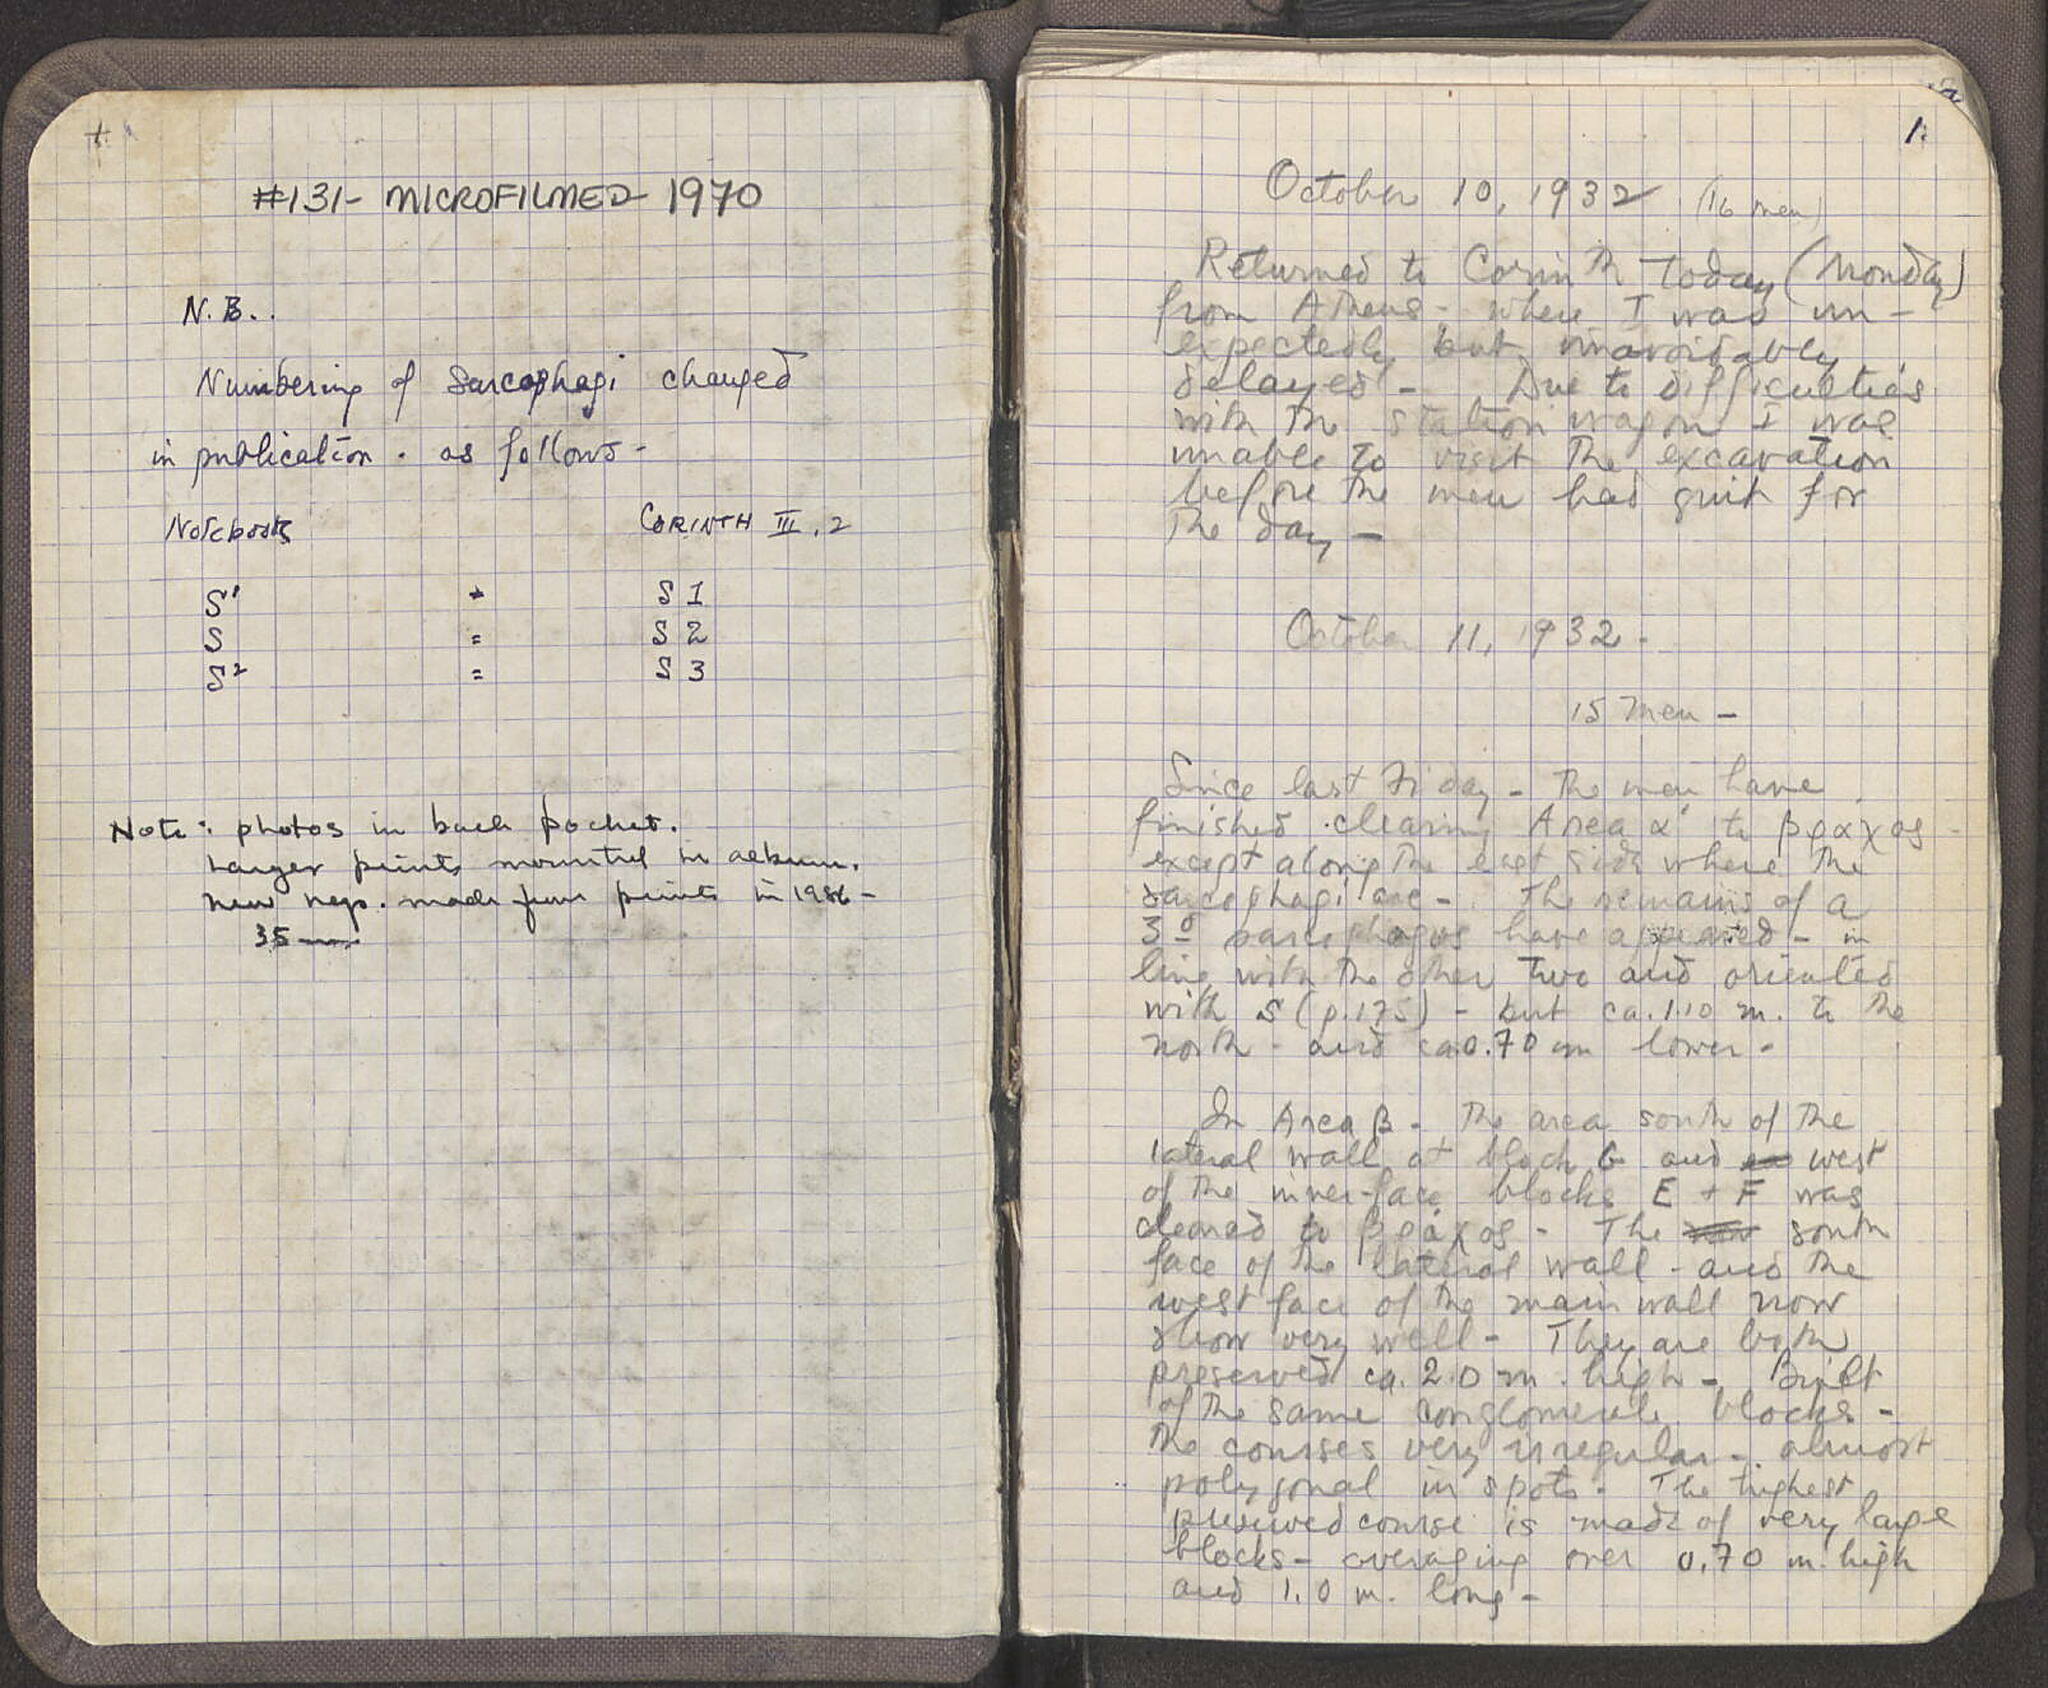 #131- MICROFILMED 1970
N.B..
Numbering of Sarcophagi changed
in publication. as follows-
Notebooks CORINTH III.2
S' = S 1
S = S 2
S² = S 3
Note: photos in back pocket.
Larger prints mounted in album.
new negs. made from prints in 1986-
35
1.
October 10, 1932 (16 men)
Returned to Corinth Today (Monday)
from Athens- where I was un-
expectedly but unavoidably
delayed- Due to difficulties
with the station wagon I was
unable to visit the excavation
before the men had quit for
the day-
October 11, 1932-
15 men-
Since last Friday- the men have
finished clearing Area α' to βράχος
except along the east side where the
sarcophagi are-. The remains of a
3º sarcophagus have appeared- in
line with the other two and oriented
with S (p.175)- but ca. 1.10 m. to the
north- and ca 0.70 m lower-
In Area B- the area south of the
lateral wall at block G and west
of the inner-face blocks E + F was
cleared to βράχος- The south
face of the lateral wall- and the
west face of the main wall now
show very well- They are both
preserved ca. 2.0 m. high- Built
of the same conglomerate blocks-
the courses very irregular- almost
polygonal in spots. The highest
preserved course is made of very large
blocks- averaging over 0.70 m. high
and 1.0 m. long-